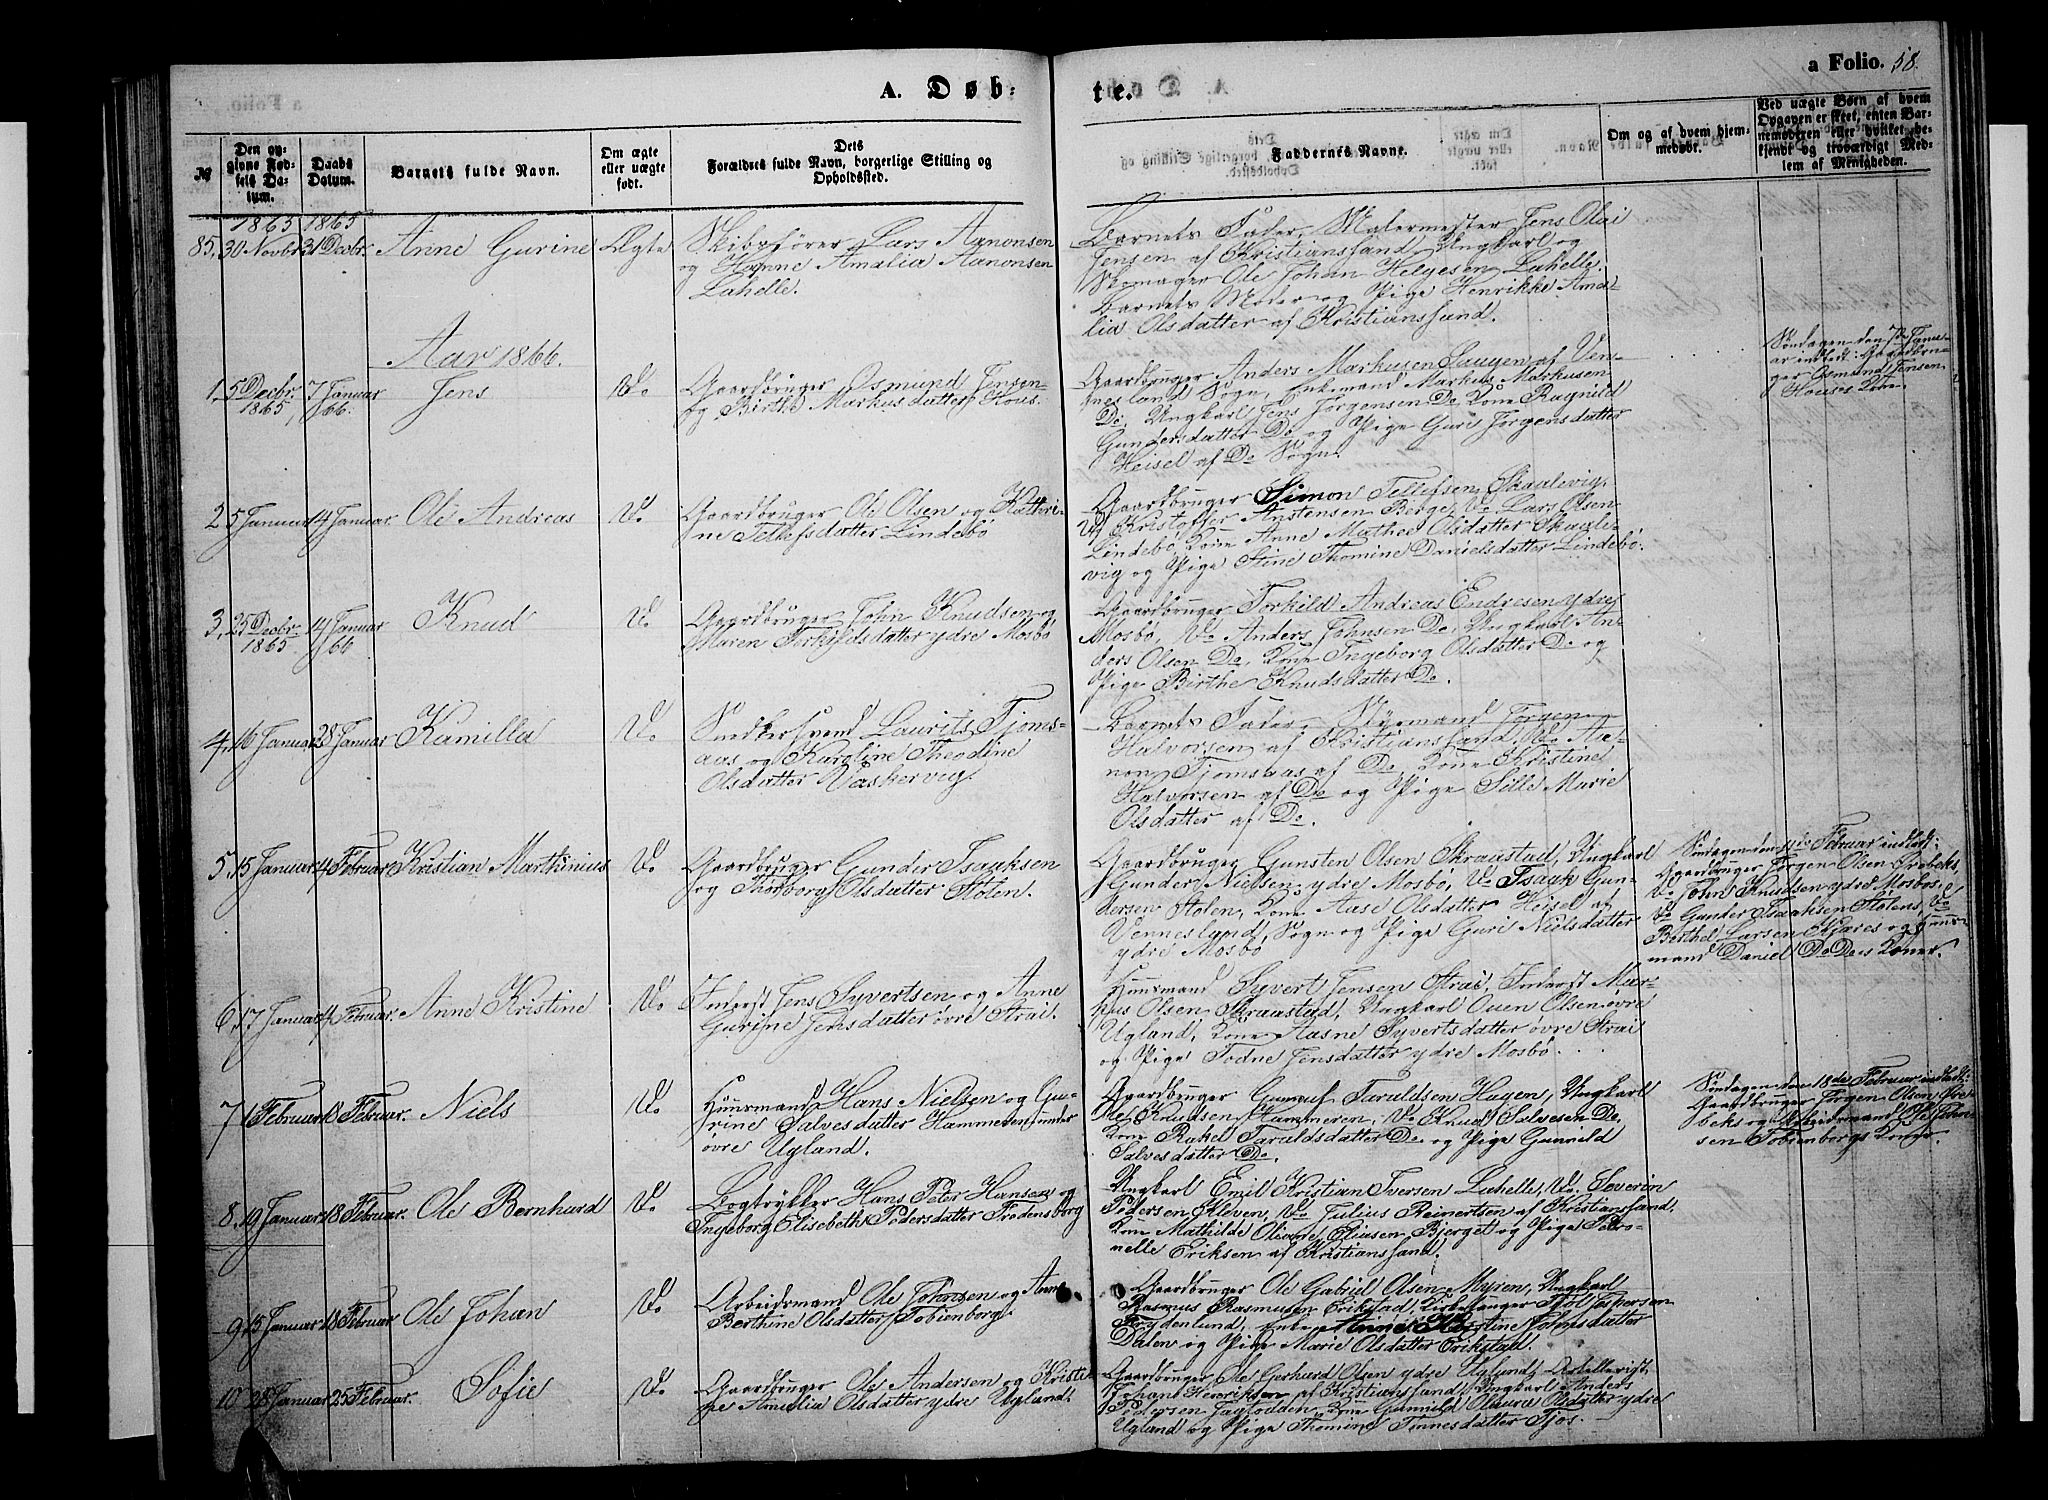 A. Døb-
te.
a Folio. 58.
№
Den opgivne Fødsels Datum.
Daabs Datum.
Barnets fulde Navn.
Om ægte eller uægte født.
Dets Forældres fulde Navn, borgerlige Stilling og Opholdssted.
Faddernes Navne.
Om og af hvem hjemmedøbt.
Ved uægte Børn af hvem Opgaven er skeet, enten Barnemoderen eller hvilket bekjendt og troværdigt Medlem af Menigheden.
1865 1865
85, 30 Novbr 31 Decbr. Anne Gurine Ægte
Skibsfører Lars Aanonsen
og Hanne Amalia Aanonsen
Lahelle.
Barnets Fader, Malermester Jens Olai
Jensen af Kristianssand, Ungkarl og
Skomager Ole Johan Helgesen Lahelle.
Barnets Moder og Pige Henrikke Ama-
lia Olsdatter af Kristianssand.
Aar 1866.
1, 5 Decbr. 1865 7 Januar 66. Jens Do
Gaardbruger Osmund Jensen
og Birthe Markusdatter Hous.
Gaardbruger Anders Markusen Saugen af Ven-
nesland Sogn, Enkemand Markus Markusen
Do, Ungkarl Jens Jørgensen Do Kone Ragnild
Gundersdatter Do og Pige Guri Jørgensdatter
Heisel af Do Sogn.
Søndagen den 7de Janu-
ar indledt: Gaardbru-
ger Osmund Jensen
Houses Kone.
2 5 Januar 14 Januar. Ole Andreas Do
Gaardbruger Ole Olsen og Kathri-
ne Tellefsdatter Lindebø
Gaardbruger Simon Tellefsen Skaalevig,
Do Kristoffer Anstensen Berge, Do Lars Olsen
Lindebø, Kone Anne Mathea Olsdatter Skaale-
vig og Pige Stine Thomine Danielsdatter Lindebø.
3, 25 Decbr. 1865 14 Januar 66 Knud Do
Gaardbruger John Knudsen og
Maren Terkjelsdatter ydre Mosbø
Gaardbruger Torkild Andreas Endresen ydre
Mosbø, Do Anders Johnsen Do, Ungkarl An-
ders Olsen Do, Kone Ingeborg Olsdatter Do og
Pige Birthe Knudsdatter Do.
4, 16 Januar 28 Januar Kamilla Do
Snedkersvend Laurits Tjoms-
aas og Karoline Theodine
Olsdatter Vaskervig.
Barnets Fader, Styrmand Jørgen
Halvorsen af Kristianssand, Do Aa-
non Tjomsaas af Do, Kone Kristine
Halvorsen af Do og Pige Sille Marie
Olsdatter af Do.
5, 15 Januar 4 Februar Kristian Marthinius Do
Gaardbruger Gunder Isaaksen
og Thorborg Olsdatter Stolen.
Gaardbruger Gunsten Olsen Skraastad, Ungkarl
Gunder Nielsen ydre Mosbø, Do Isaak Gun-
dersen Stolen, Kone Aase Olsdatter Heisel af
Vennesland Sogn og Pige Guri Nielsdatter
ydre Mosbø
Søndagen den 11te Februar indledt:
Gaardbruger Jørgen Olsen Drøbeks,
Do John Knudsen ydre Mosbøs,
Do Gunder Isaaksen Stolens, Do
Berthel Larsen Kjæres og Huus-
mand Daniel Do Do's Koner.
6, 17 Januar 4 Februar. Anne Kristine Do
Inderst Jens Syvertsen og Anne
Gurine Jensdatter øvre Strai.
Huusmand Syvert Jensen Strai, Inderst Mar-
kus Olsen Skraastad, Ungkarl Ouen Olsen øvre
Ugland, Kone Aasne Syvertsdatter øvre Strai
og Pige Todne Jensdatter ydre Mosbø.
7 1 Februar 18 Februar. Niels Do
Huusmand Hans Nielsen og Gu-
rine Salvesdatter Hammeren under
øvre Ugland.
Gaardbruger Gunuf Taraldsen Hagen, Ungkarl
Ole Knudsen Hammeren, Do Knud Salvesen Do,
Kone Rakel Taraldsdatter Do og Pige Gunnild
Salvesdatter Do.
Søndagen den 18de Februar indledt:
Gaardbruger Jørgen Olsen Drø-
beks og Arbeidsmand Ole John-
sen Tobienborgs Koner.
8, 19 Januar 18 Februar. Ole Bernhard Do
Bogtrykker Hans Peter Hansen og
Ingeborg Elisebeth Pedersdatter Fredensborg
Ungkarl Emil Kristian Iversen Lahelle, Do Severin
Pedersen Kleven, Do Julius Reinertsen af Kristianssand,
Kone Mathilde Olivare Eliasen Bjerget og Pige Petro-
nelle Eriksen af Kristianssand.
9 15 Januar 18 Februar Ole Johan Do
Arbeidsmand Ole Johnsen og Anne
Berthine Olsdatter Tobienborg.
Gaardbruger Ole Gabriel Olsen Myren, Ungkarl
Rasmus Rasmusen Erikstad, Kirkesanger Sjøl Jespersen
Frydenlund, Enke Anne Kirstine Tomasdatter
Dalen og Pige Marie Olsdatter Erikstad.
10 28 Januar 25 Februar. Sofie Do
Gaardbruger Ole Andersen og Kristi-
ne Amalia Olsdatter ydre Ugland.
Gaardbruger Ole Gerhard Olsen ydre Ugland,
Johans Henriksen af Kristianssand, Ungkarl Anders
Pedersen Jægtodden, Kone Gunnild Olaura Olsdatter ydre
Ugland og Pige Thomine Tønnesdatter Tjos.